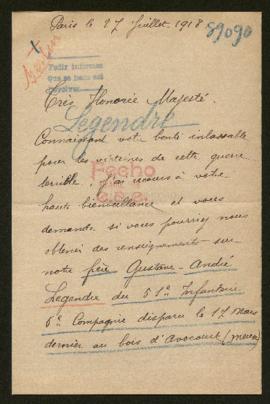 Paris le 27 Juillet 1918
89090
Pedir informes
Très Honorée Majesté.
Legendre
Connaissant votre bonté inlassable
pour les victimes de cette guerre
terrible. J'ai recours à votre
Fecho
haute bienveillance et vous
demande si vous pourriez nous
obtenir des renseignements sur
notre frère Gustave-André
Legendre du 51e Infanterie
6e Compagnie disparu le 17 Mars
dernier au bois d'Avocourt (Meuse)